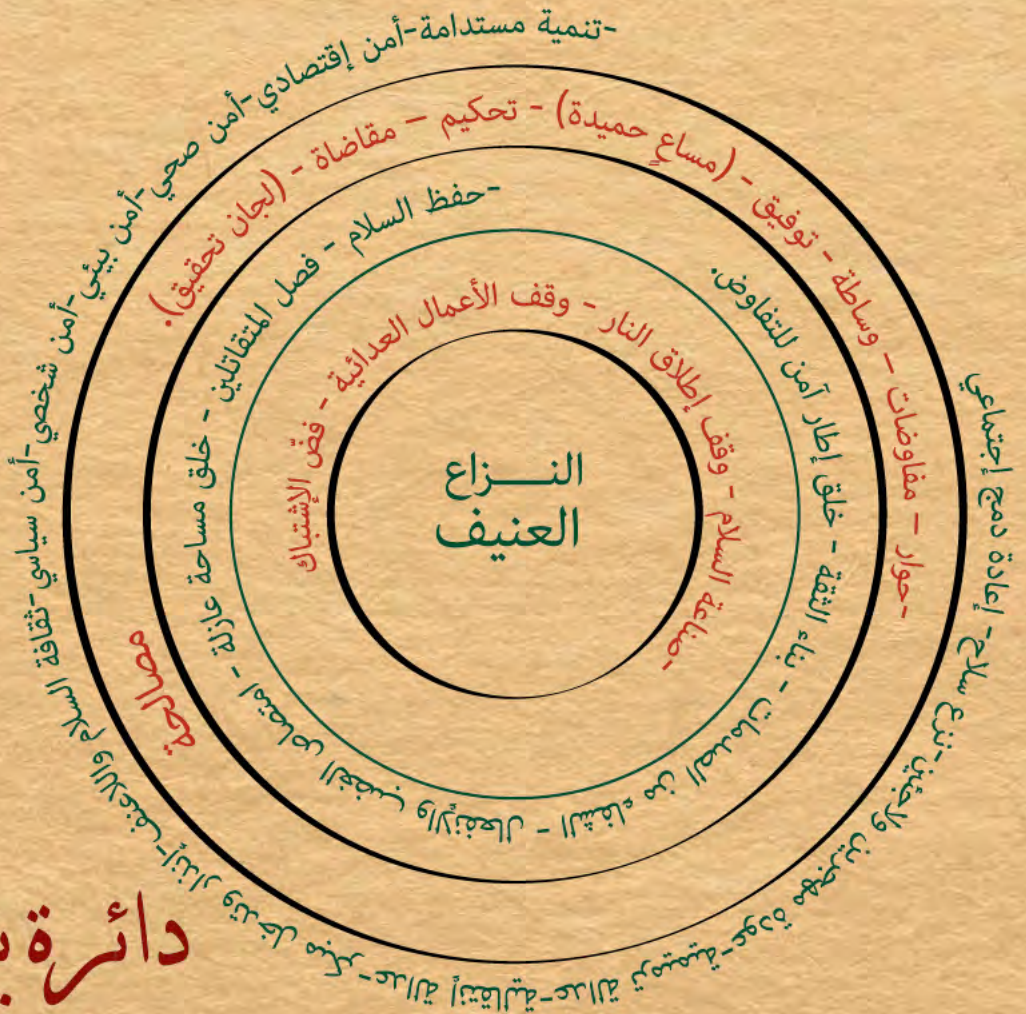 النـــزاع
العنيف
-صناعة السلام - وقف إطلاق النار - وقف الأعمال العدائية - فضّ الإشتباك
-حفظ السلام - فصل المتقاتلين - خلق مساحة عازلة - امتصاص الغضب والإنفعال - الشفاء من الصدمات - بناء الثقة - خلق إطار آمن للتفاوض.
-حوار - مفاوضات – وساطة - توفيق - (مساعٍ حميدة) - تحكيم – مقاضاة - (لجان تحقيق).
مصالحة
-تنمية مستدامة-أمن إقتصادي-أمن صحي-أمن بيئي-أمن شخصي-أمن سياسي-ثقافة السلام واللاعنف-إنذار وتدخل مبكر-عدالة إنتقالية-عدالة ترميمية-عودة مهجرين ولاجئين-نزع سلاح- إعادة دمج إجتماعي
دائرة